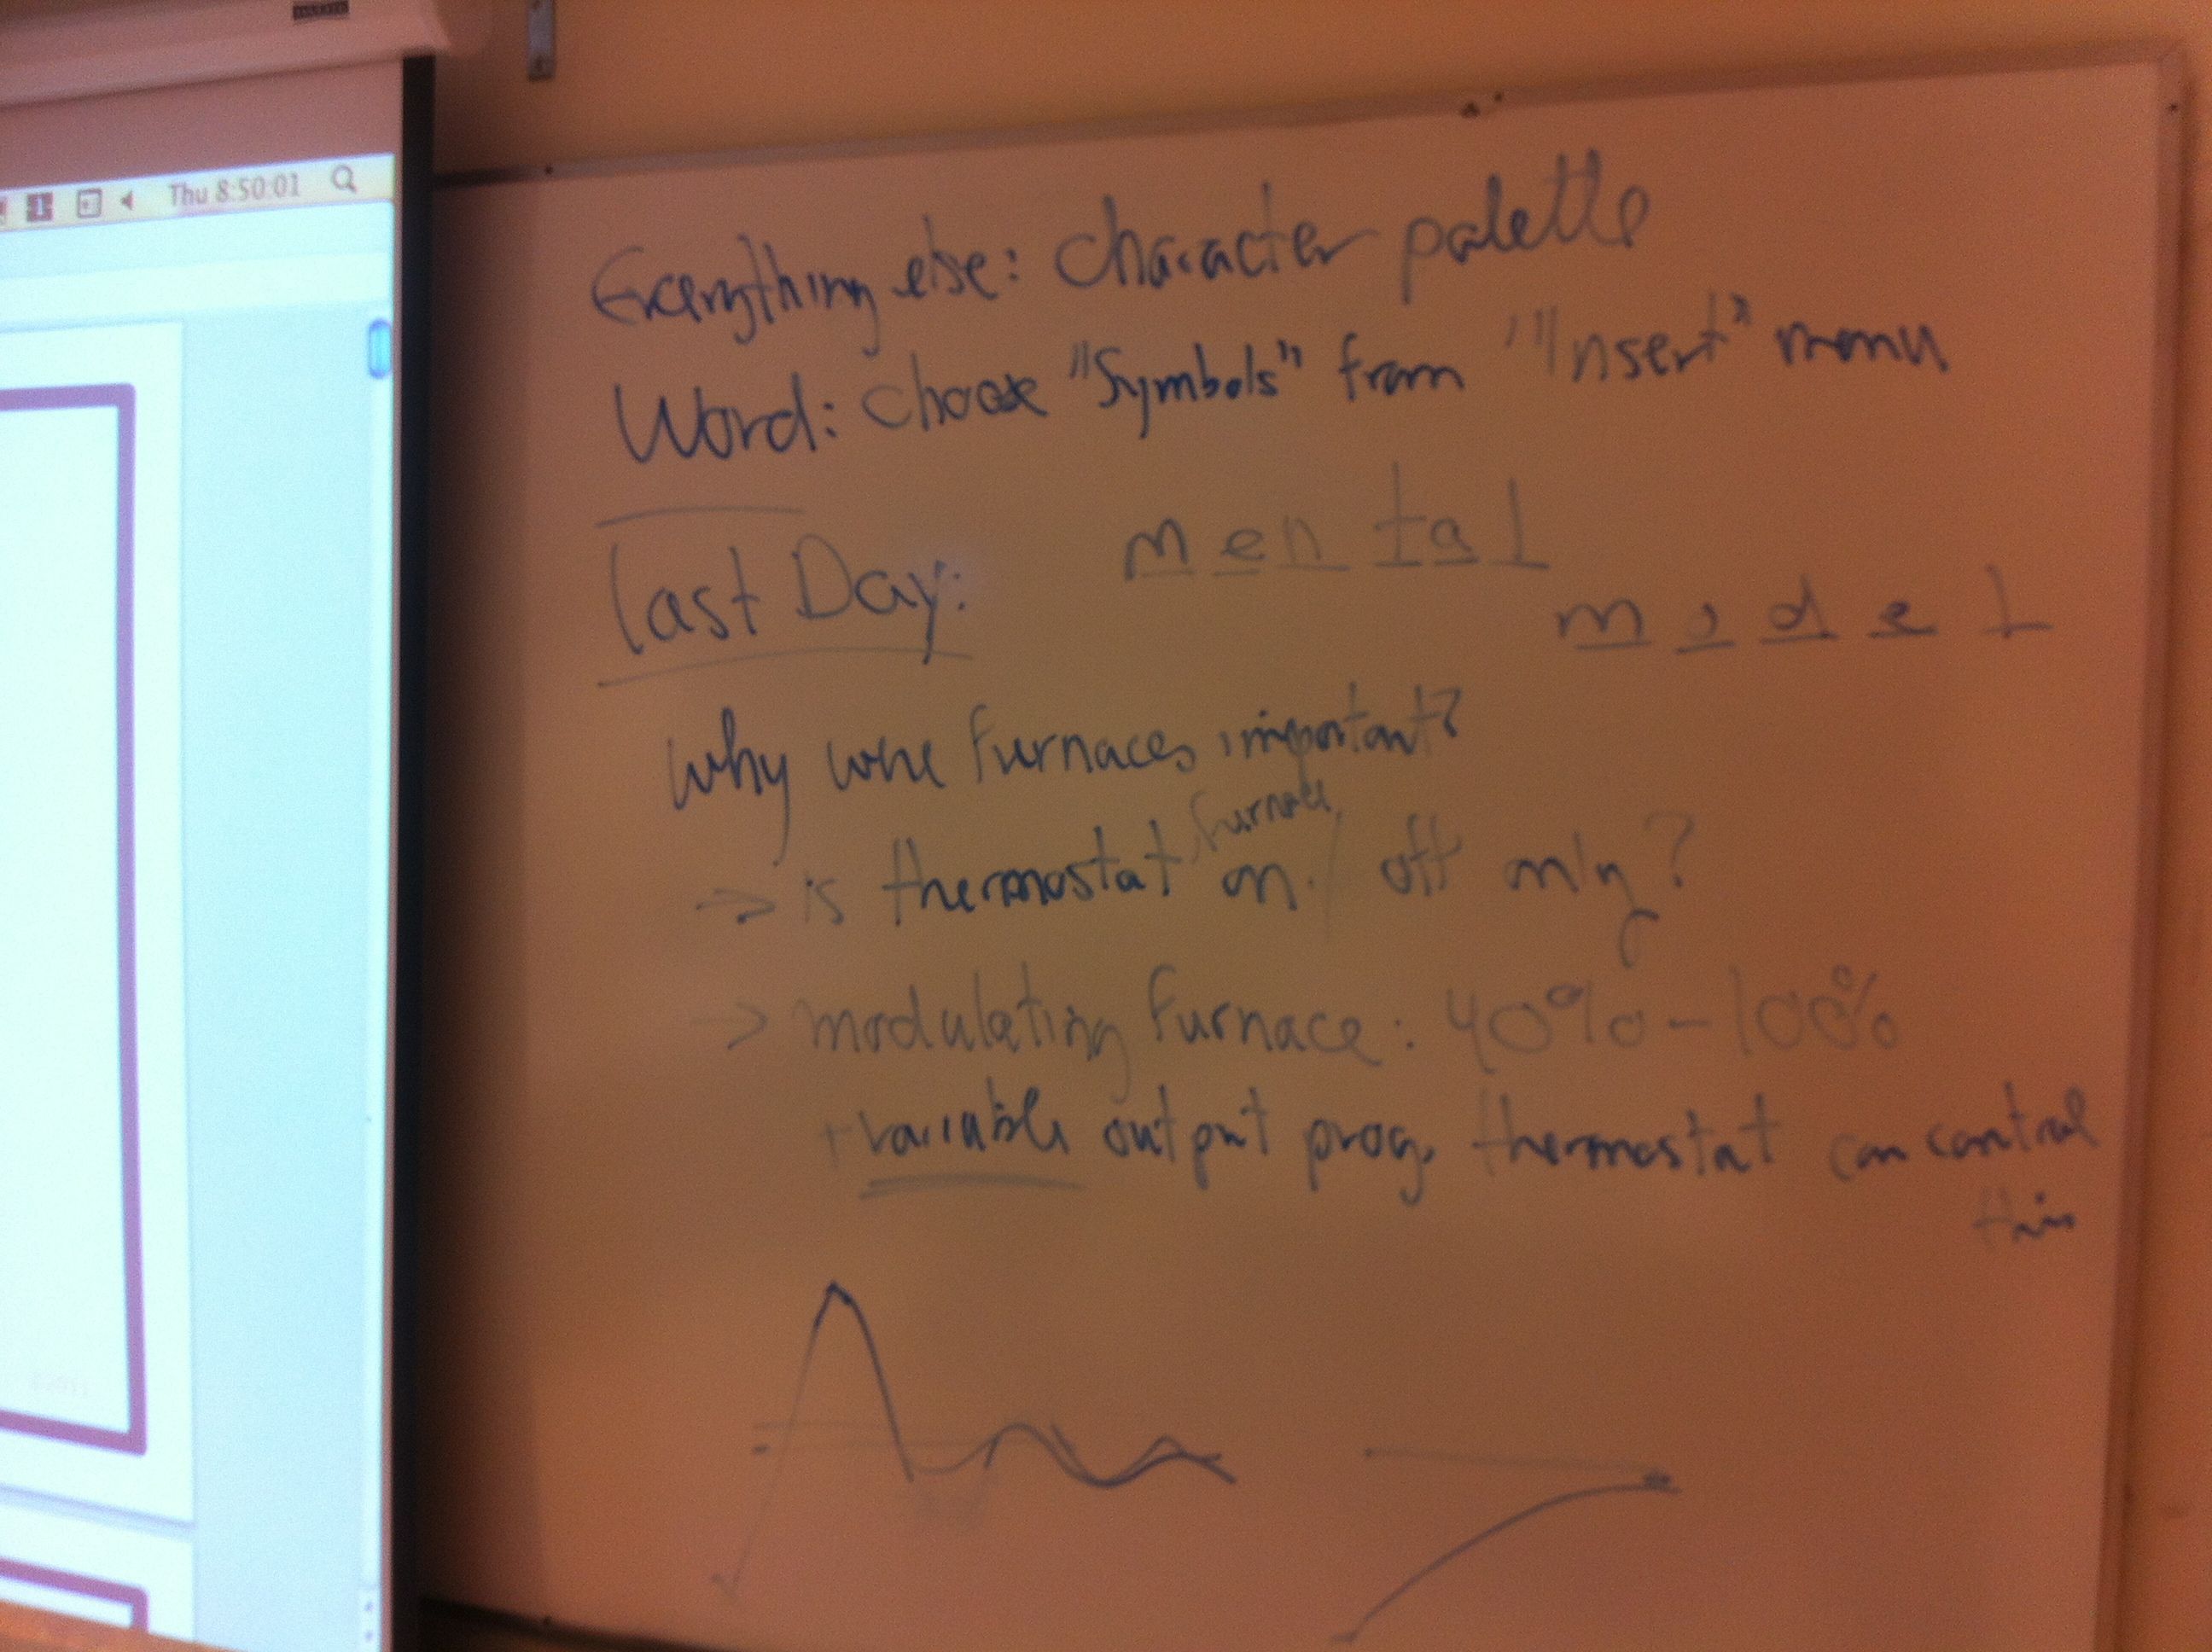 Thu 8:50:01
Everything else: character palette
Word: choose "Symbols" from "Insert" menu
last Day:
mental
model
why were furnaces important?
furnace
→ is thermostat on / off only?
> modulating furnace: 40% - 100%
+ variable output prog. thermostat can control
this